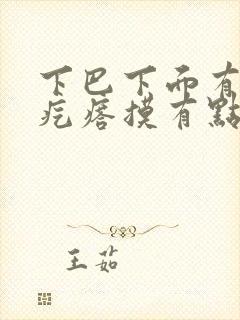 下巴下面有
疙瘩摸有點
王茹